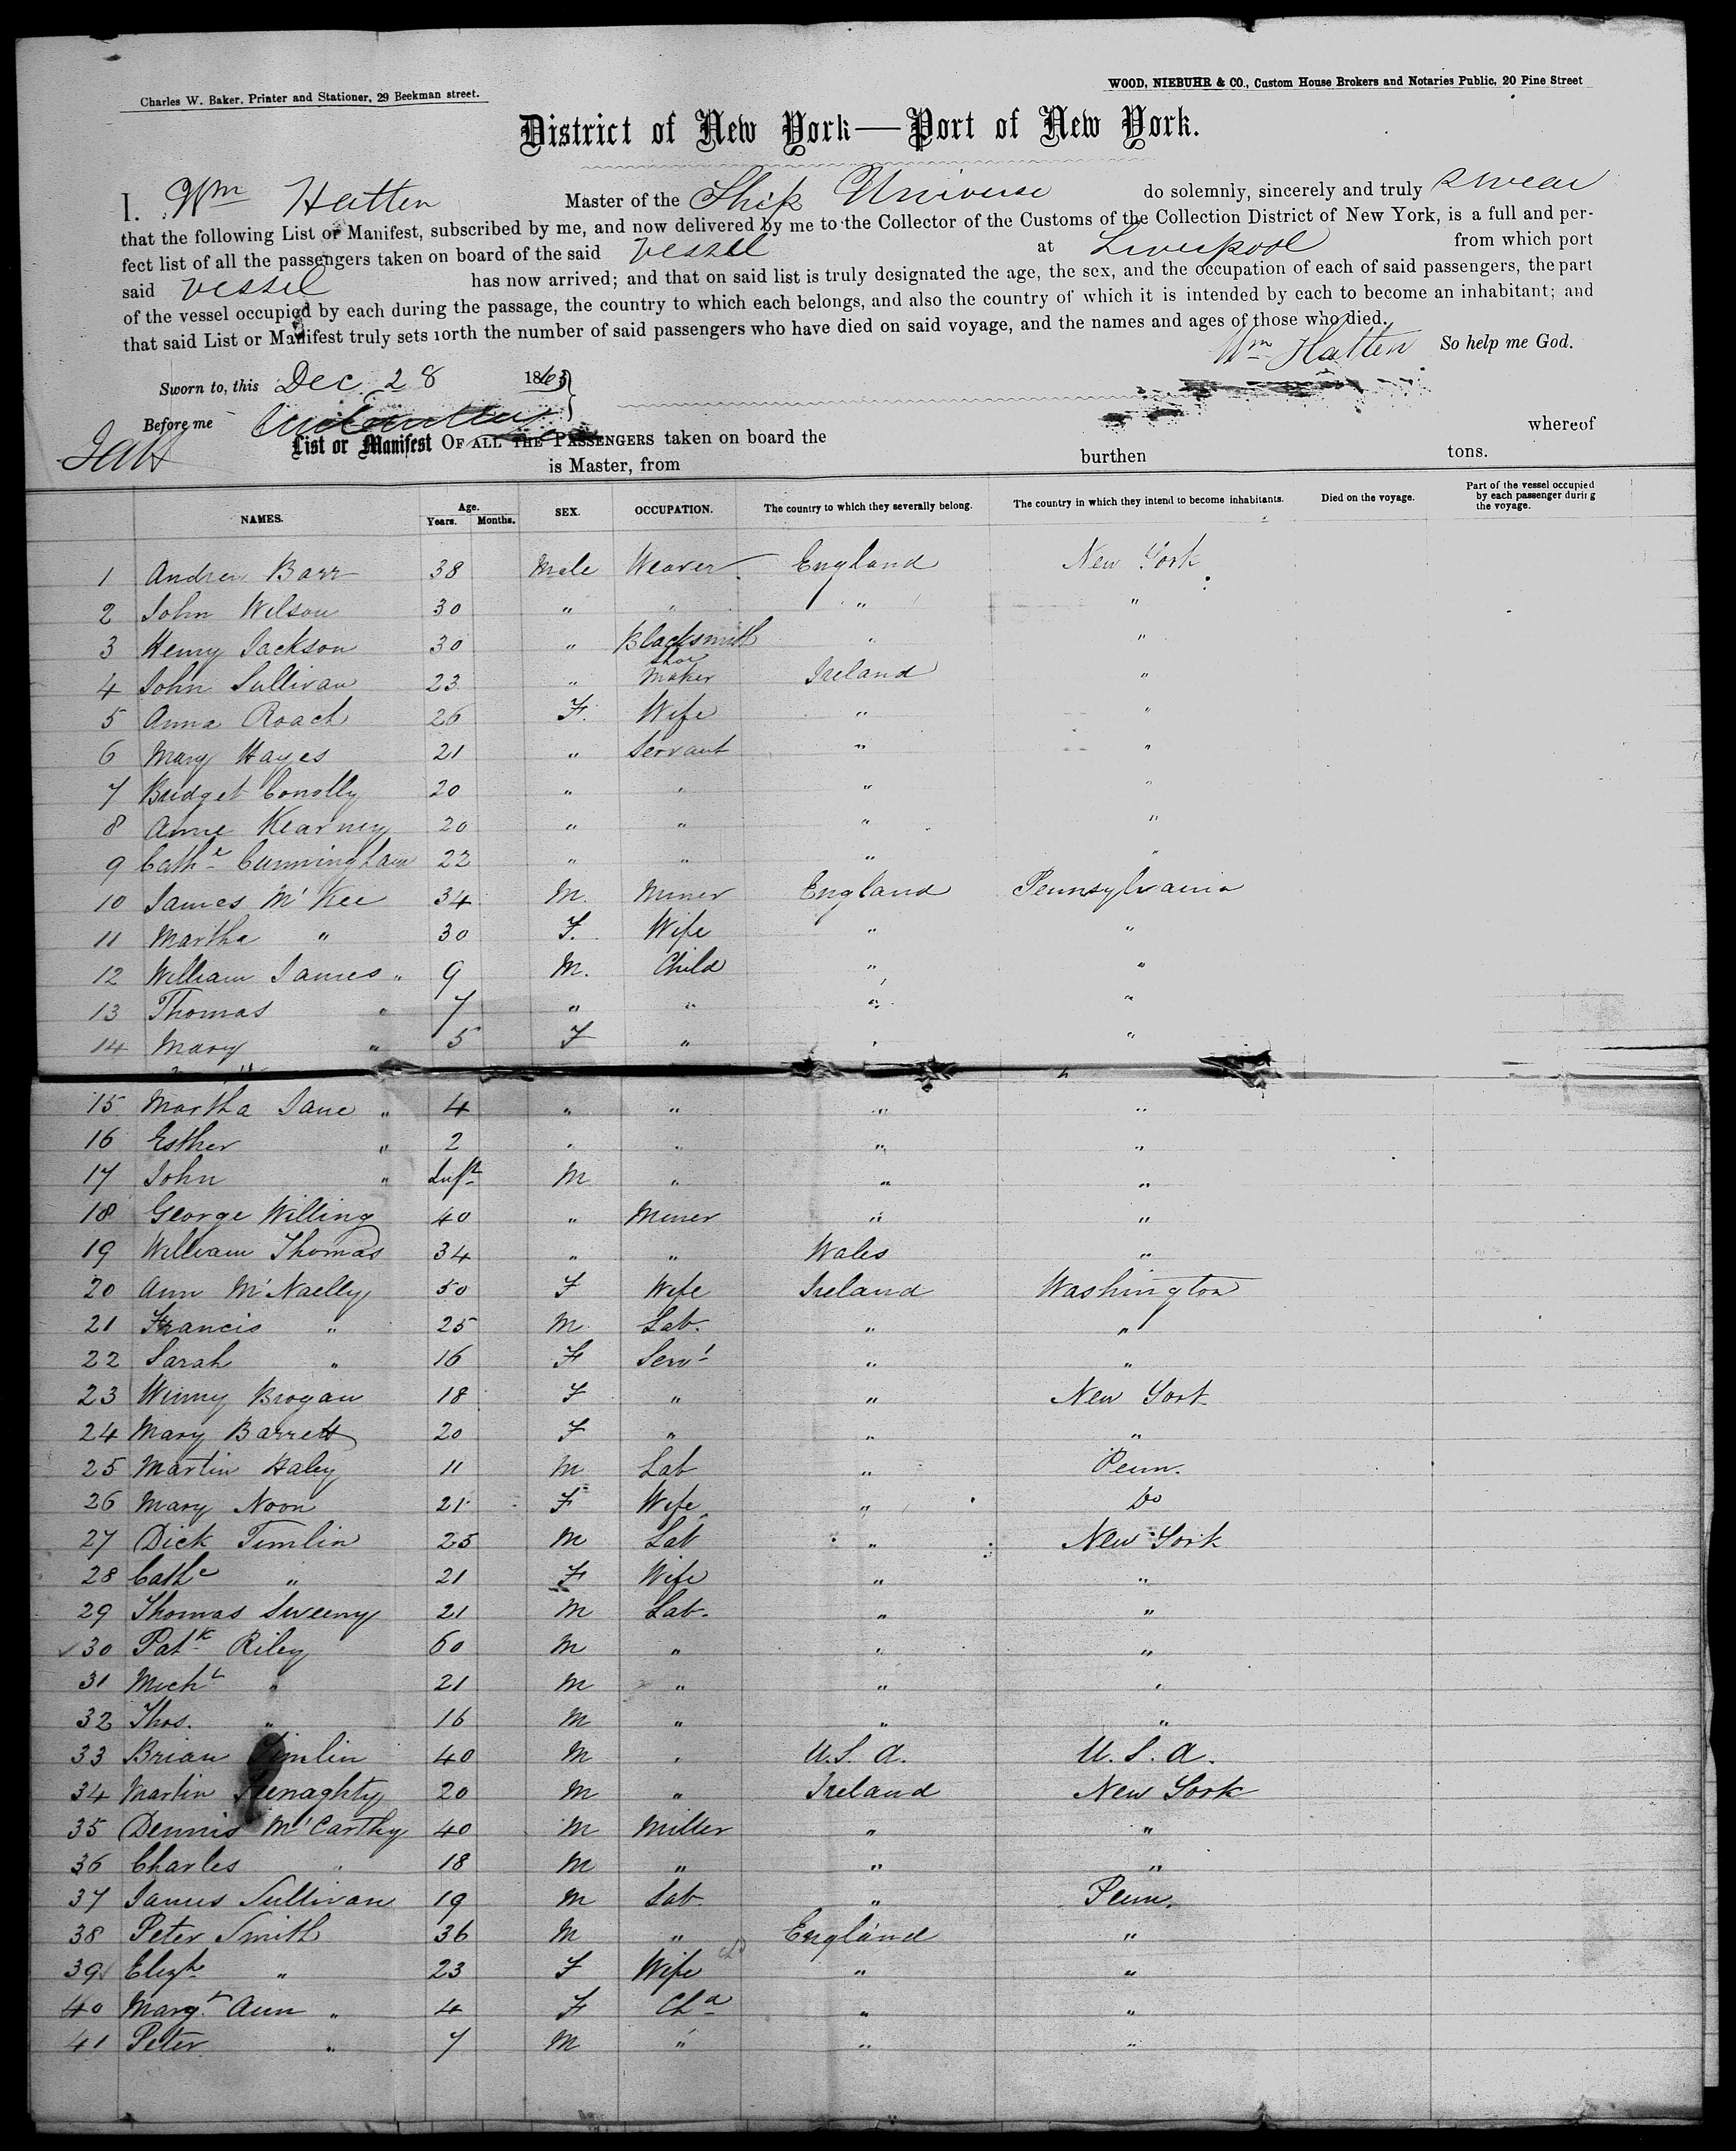 Charles W. Baker, Printer and Stationer, 29 Beekman street.
WOOD, NIEBUHR & CO., Custom House Brokers and Notaries Public, 20 Pine Street
District of New York—Port of New York.
I. Wm Hatten Master of the Ship Universe do solemnly, sincerely and truly swear
that the following List or Manifest, subscribed by me, and now delivered by me to the Collector of the Customs of the Collection District of New York, is a full and per-
fect list of all the passengers taken on board of the said vessel at Liverpool from which port
said vessel has now arrived; and that on said list is truly designated the age, the sex, and the occupation of each of said passengers, the part
of the vessel occupied by each during the passage, the country to which each belongs, and also the country of which it is intended by each to become an inhabitant; and
that said List or Manifest truly sets forth the number of said passengers who have died on said voyage, and the names and ages of those who died.
Wm Hatten So help me God.
Sworn to, this Dec. 28 1863
Before me
List or Manifest OF ALL THE PASSENGERS taken on board the whereof
is Master, from burthen tons.
NAMES. Age. Years. Months. SEX. OCCUPATION. The country to which they severally belong. The country in which they intend to become inhabitants. Died on the voyage. Part of the vessel occupied by each passenger during the voyage.
1 Andrew Barr 38 Male Weaver England New York
2 John Wilson 30 " " " "
3 Henry Jackson 30 " Blacksmith " "
4 John Sullivan 23 " Shoe Maker Ireland "
5 Anna Roach 26 F. Wife " "
6 Mary Hayes 21 " Servant " "
7 Bridget Conolly 20 " " " "
8 Anne Kearney 20 " " " "
9 Cathe Cunningham 22 " " " "
10 James McKee 34 M. Miner England Pennsylvania
11 Martha " 30 F. Wife " "
12 William James " 9 M. Child " "
13 Thomas " 7 " " " "
14 Mary " 5 F " " "
15 Martha Jane " 4 " " " "
16 Esther " 2 " " " "
17 John " Inft M " " "
18 George Willing 40 " Miner " "
19 William Thomas 34 " " Wales "
20 Ann McNaelly 50 F Wife Ireland Washington
21 Francis " 25 M. Lab. " "
22 Sarah " 16 F Servt " "
23 Winny Brogan 18 F " " New York
24 Mary Barrett 20 F " " "
25 Martin Haley 11 M Lab " Penn.
26 Mary Noon 21 F Wife " Do
27 Dick Timlin 25 M Lab " New York
28 Cathe " 21 F Wife " "
29 Thomas Sweeny 21 M Lab. " "
30 Patk Riley 60 M " " "
31 Michl " 21 M " " "
32 Thos. " 16 M " " "
33 Brian Timlin 40 M " U.S.A. U.S.A.
34 Martin 20 M " Ireland New York
35 Dennis McCarthy 40 M Miller " "
36 Charles " 18 M " " "
37 James Sullivan 19 M Lab. " Penn.
38 Peter Smith 36 M " England "
39 Elizth " 23 F Wife " "
40 Margt Ann " 4 F Chd " "
41 Peter " 7 M " " "